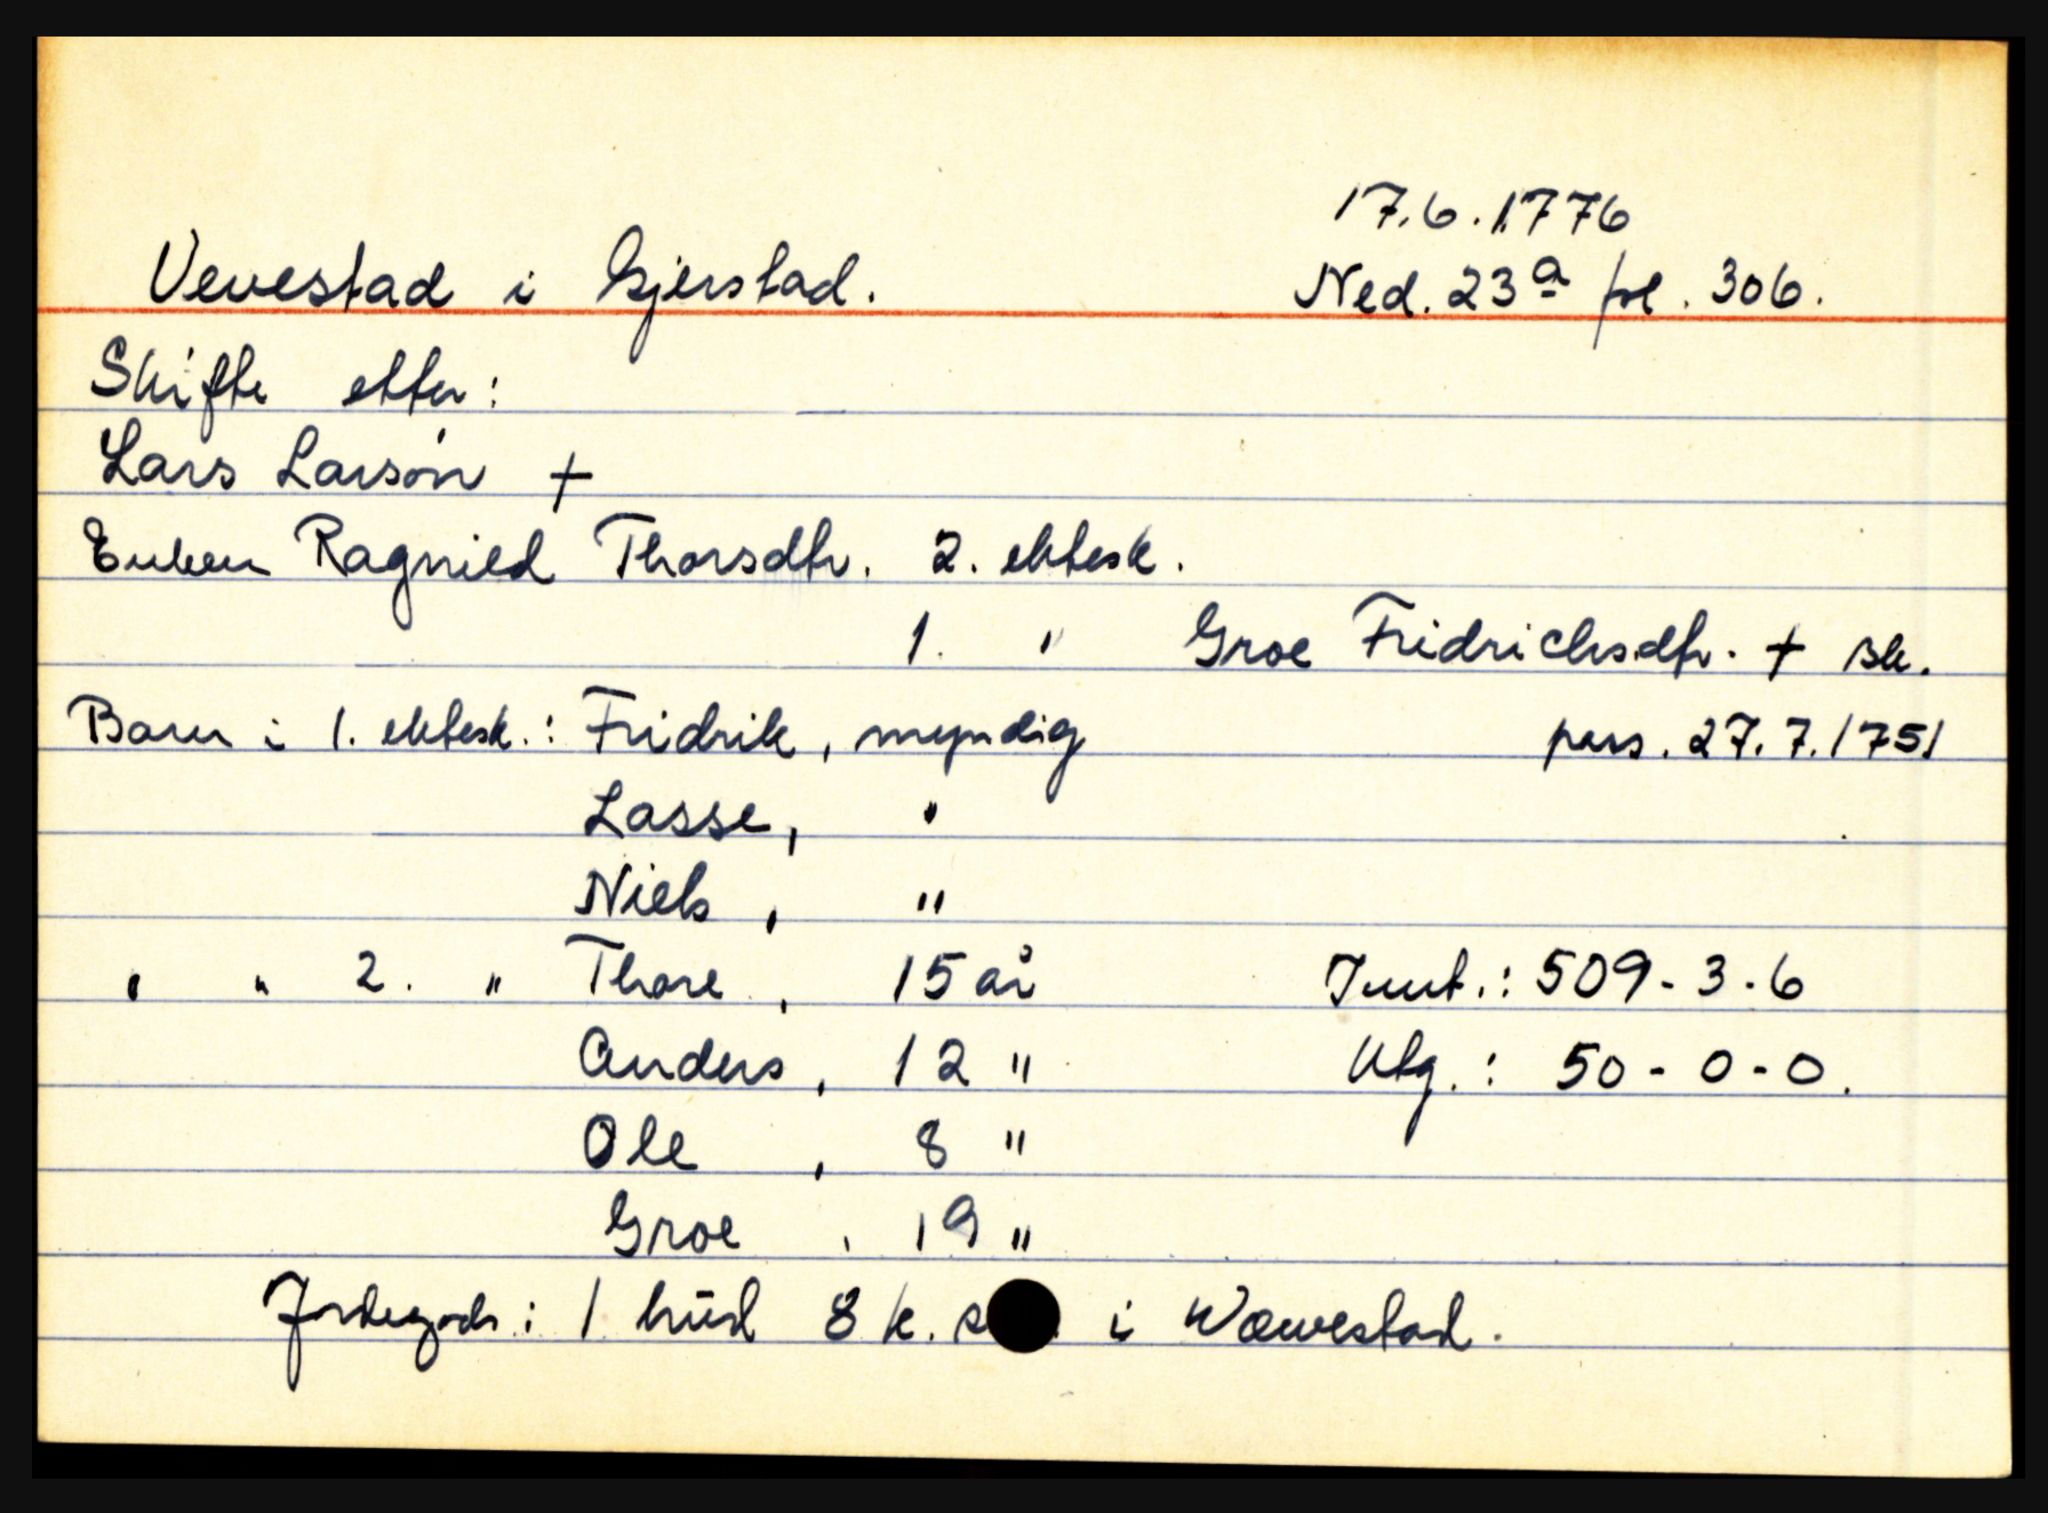 17.6.1776
Vevestad i Gjerstad. Ned. 23a fol. 306.
Skifte etter:
Lars Larsøn †
Enken Ragnild Thorsdtr. 2. ektesk.
1. " Groe Fridrichsdtr. † sk.
Barn i 1. ektesk.: Fridrik, myndig pass. 27.7.1751
Lasse, "
Niels, "
" " 2. " Thore, 15 år Innt.: 509-3-6
Anders, 12 " Utg.: 50-0-0.
Ole, 8 "
Groe, 19 "
Jordegods: 1 hud 8 k. s i Wævestad.